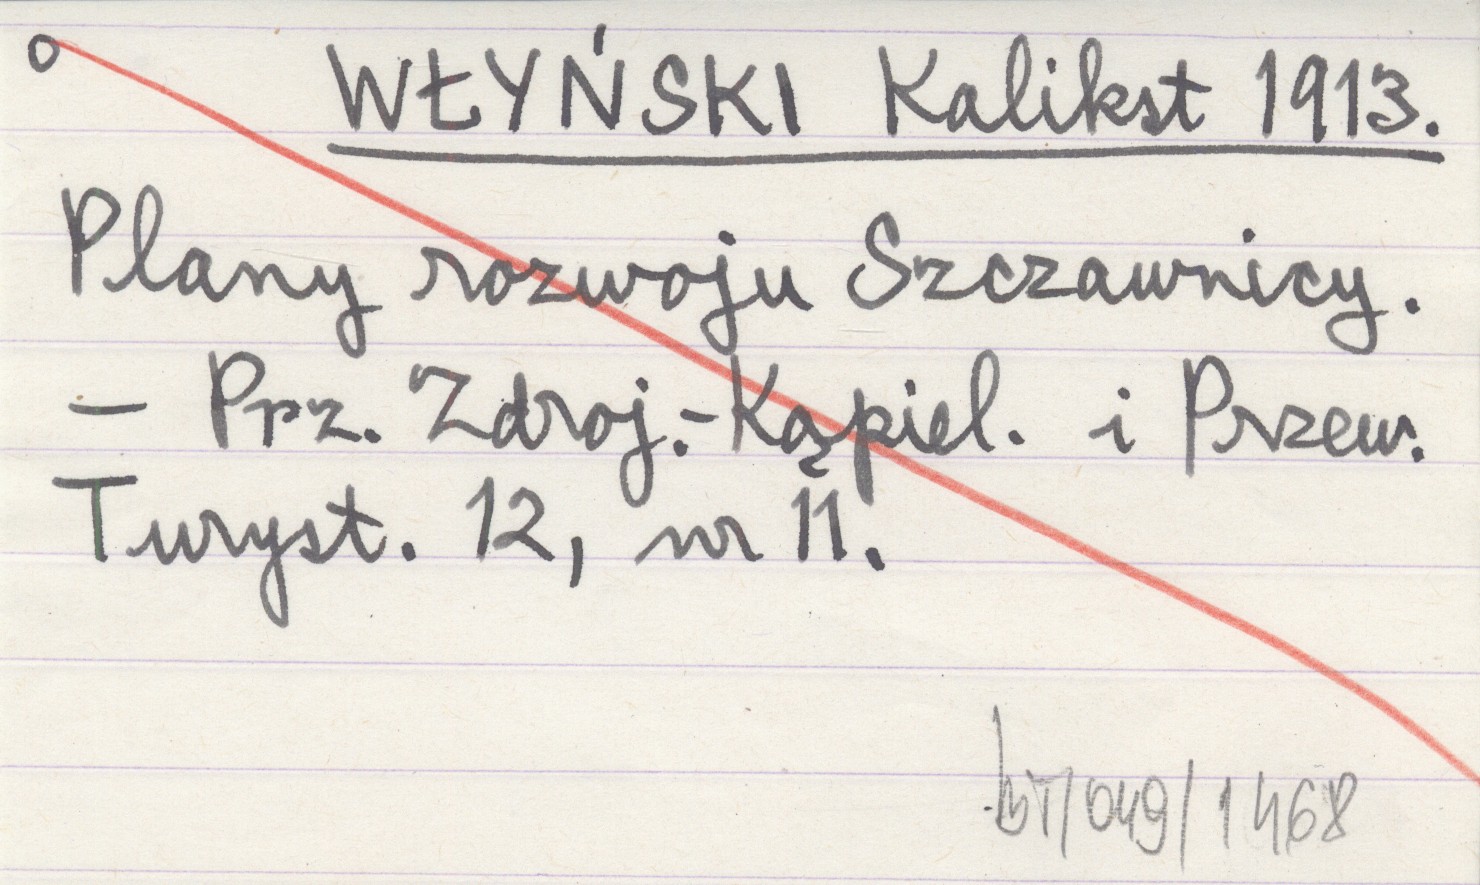 o
WŁYŃSKI Kalikst 1913.
Plany rozwoju Szczawnicy.
– Prz. Zdroj.-Kąpiel. i Przew.
Turyst. 12, nr 11.
/049/1468